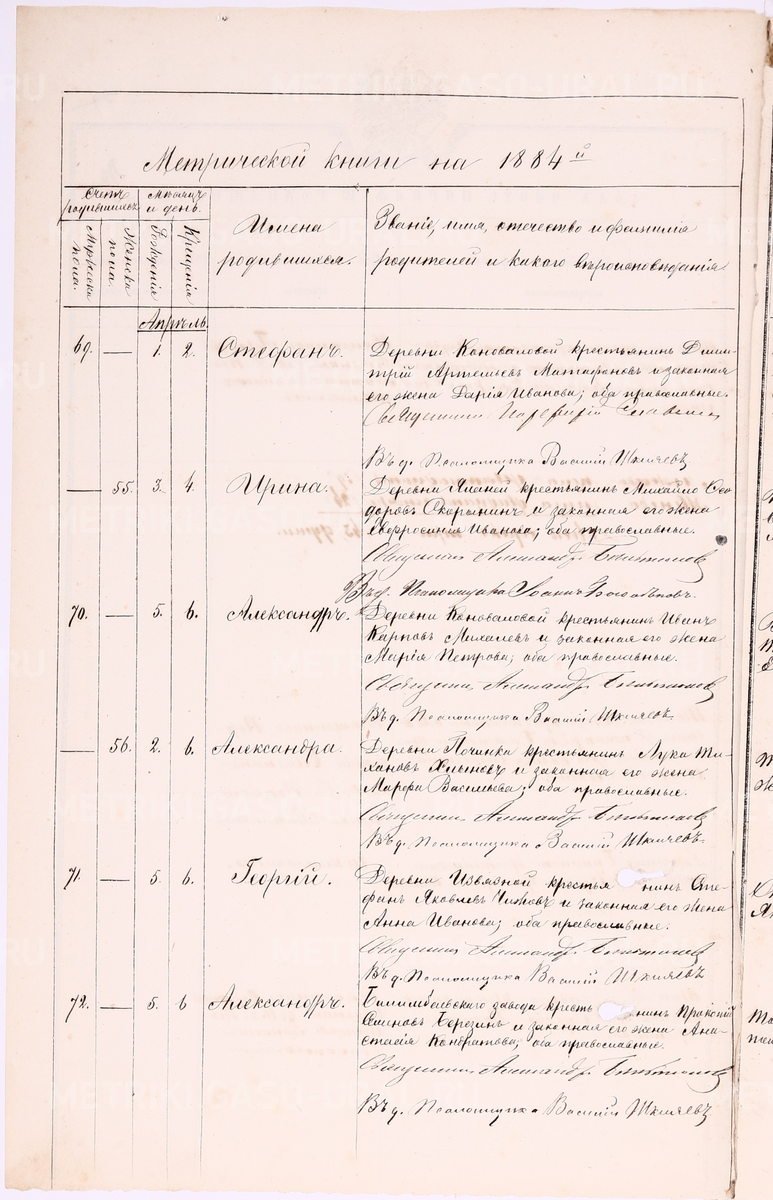 Метрической книги на 1884 й
Счетъ родившихся.
Мужеска пола.
Женска пола.
Мѣсяцъ и день.
Рожденія
Крещенія
Имена
родившихся.
Званіе, имя, отечество и фамилія
родителей и какого вѣроисповѣданія
Апрѣль.
69. — 1. 2. Стефанъ.
Деревни Коноваловой крестьянинъ Дими-
трій Артемьевъ и законная
его жена Дарія Иванова; оба православные.
Священникъ
Въ д. Псаломщика Василій
— 55. 3. 4. Ирина.
Деревни крестьянинъ Михайло Ѳео-
доровъ Скорынинъ и законная его жена
Евфросинія Иванова; оба православные.
Священникъ Александръ
Въ д. Псаломщика Іоаннъ
70. — 5. 6. Александръ.
Деревни Коноваловой крестьянинъ Иванъ
Карповъ и законная его жена
Марія Петрова; оба православные.
Священникъ Александръ
Въ д. Псаломщика Василій
— 56. 2. 6. Александра.
Деревни Починка крестьянинъ Лука Ти-
хановъ и законная его жена
Марфа Васильева; оба православные.
Священникъ Александръ
Въ д. Псаломщика Василій
71. — 5. 6. Георгій.
Деревни Извязной крестья нинъ Сте-
фанъ Яковлевъ Чижовъ и законная его жена
Анна Иванова; оба православные.
Священникъ Александръ
Въ д. Псаломщика Василій
72. — 5. 6 Александръ.
Билимбаевскаго завода кресть нинъ Прокопій
Семеновъ Березинъ и законная его жена Ана-
стасія Кондратьева; оба православные.
Священникъ Александръ
Въ д. Псаломщика Василій